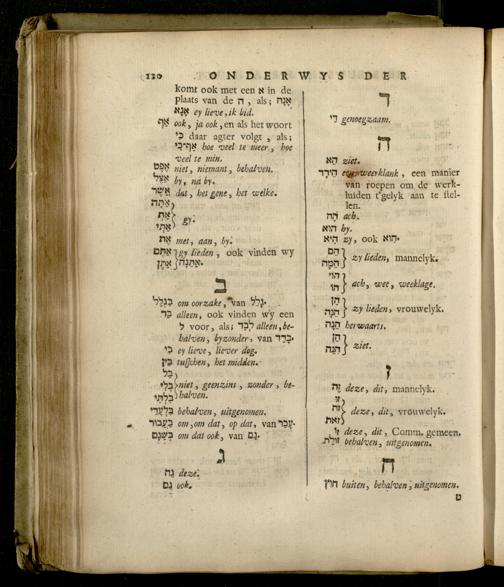 120 ONDERWYS DER
komt ook met een א in de
plaats van de ה, als; אָנָּה
אָנָּא ey lieve, ik bid.
אַף ook, ja ook, en als het woort
כִּי daar agter volgt, als;
אַף־כִּי hoe veel te meer, hoe
veel te min.
אֶפֶס niet, niemant, behalven.
אֵצֶל by, na by.
אֲשֶׁר dat, het gene, het welke.
אַתָּה
אַתְּ
אַתִּי } gy.
אֵת met, aan, by.
אַתֶּם
אַתֶּן } gy lieden, ook vinden wy
אַתֵּנָה.
ב
בִּגְלַל om oorzake, van גָּלַל.
בַּד alleen, ook vinden wy een
ל voor, als; לְבַד alleen, be-
halven, byzonder, van בָּדַד.
בִּי ey lieve, liever dog.
בֵּין tusschen, het midden.
בַּל
בְּלִי
בִּלְתִּי } niet, geenzins, zonder, be-
halven.
בִּלְעֲדֵי behalven, uitgenomen.
בַּעֲבוּר om, om dat, op dat, van עָבַר.
בְּשַׁגַּם om dat ook, van גַּם.
ג
גֵּה deze.
גַּם ook.
ד
דַּי genoegzaam.
ה
הֵא ziet.
הֵידָד een weerklank, een manier
van roepen om de werk-
luiden t'gelyk aan te stel-
len.
הָהּ ach.
הוּא hy.
הִיא zy, ook הִוא.
הֵם
הֵמָּה } zy lieden, mannelyk.
הוֹי
הוֹ } ach, wee, weeklage.
הֵן
הֵנָּה } zy lieden, vrouwelyk.
הֵנָּה herwaarts.
הֵן
הִנֵּה } ziet.
ז
זֶה deze, dit, mannelyk.
זוֹ
זֹה
זֹאת } deze, dit, vrouwelyk.
זוּ deze, dit, Comm. gemeen.
זוּלַת behalven, uitgenomen.
ח
חוּץ buiten, behalven, uitgenomen.
ט